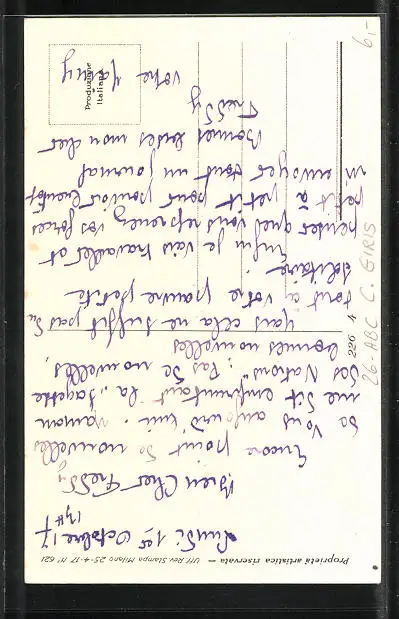 Proprietà artistica riservata — Uff. Rev. Stampa Milano 25-4-17 N° 621
Lundi 1er Octobre 17
Bien Cher Freddy
Encore point de nouvelles
de vous aujourd'hui. Maman
me dit en empruntant la "Gazette
des Nations", Pas de nouvelles,
bonnes nouvelles
Mais cela ne suffit pas du
tout à votre pauvre petite
solitaire.
Enfin je vais travailler et
penser que vous reprenez vos forces
petit à petit pour pouvoir bientôt
m'envoyer tout un journal
Bonnes mon cher
Freddy
votre
Produzione
Italiana
226 4
26-ABC C. GIRIS
6,-